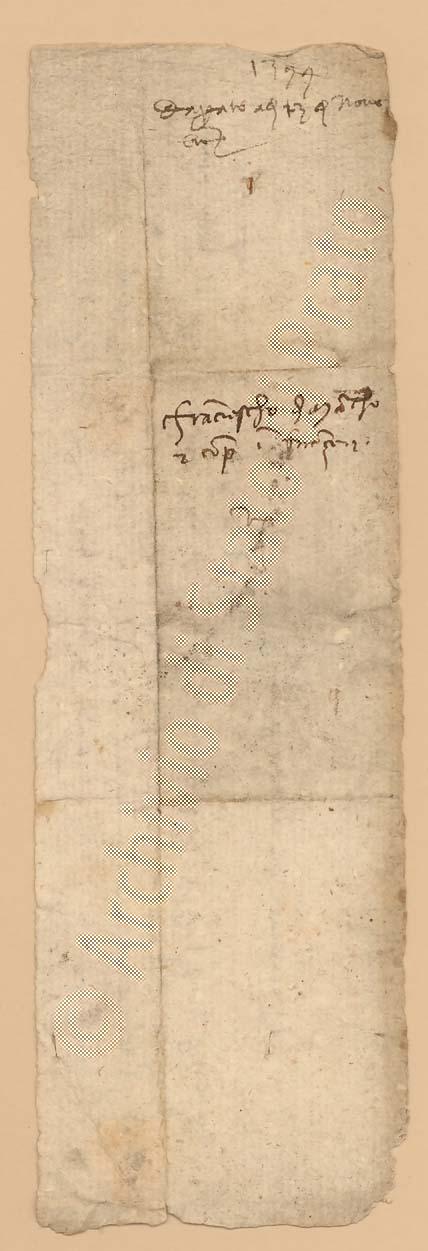 1399
adì 13 di nove
Francescho di Marcho
e comp in Firenze
© Archivio di Stato di Prato